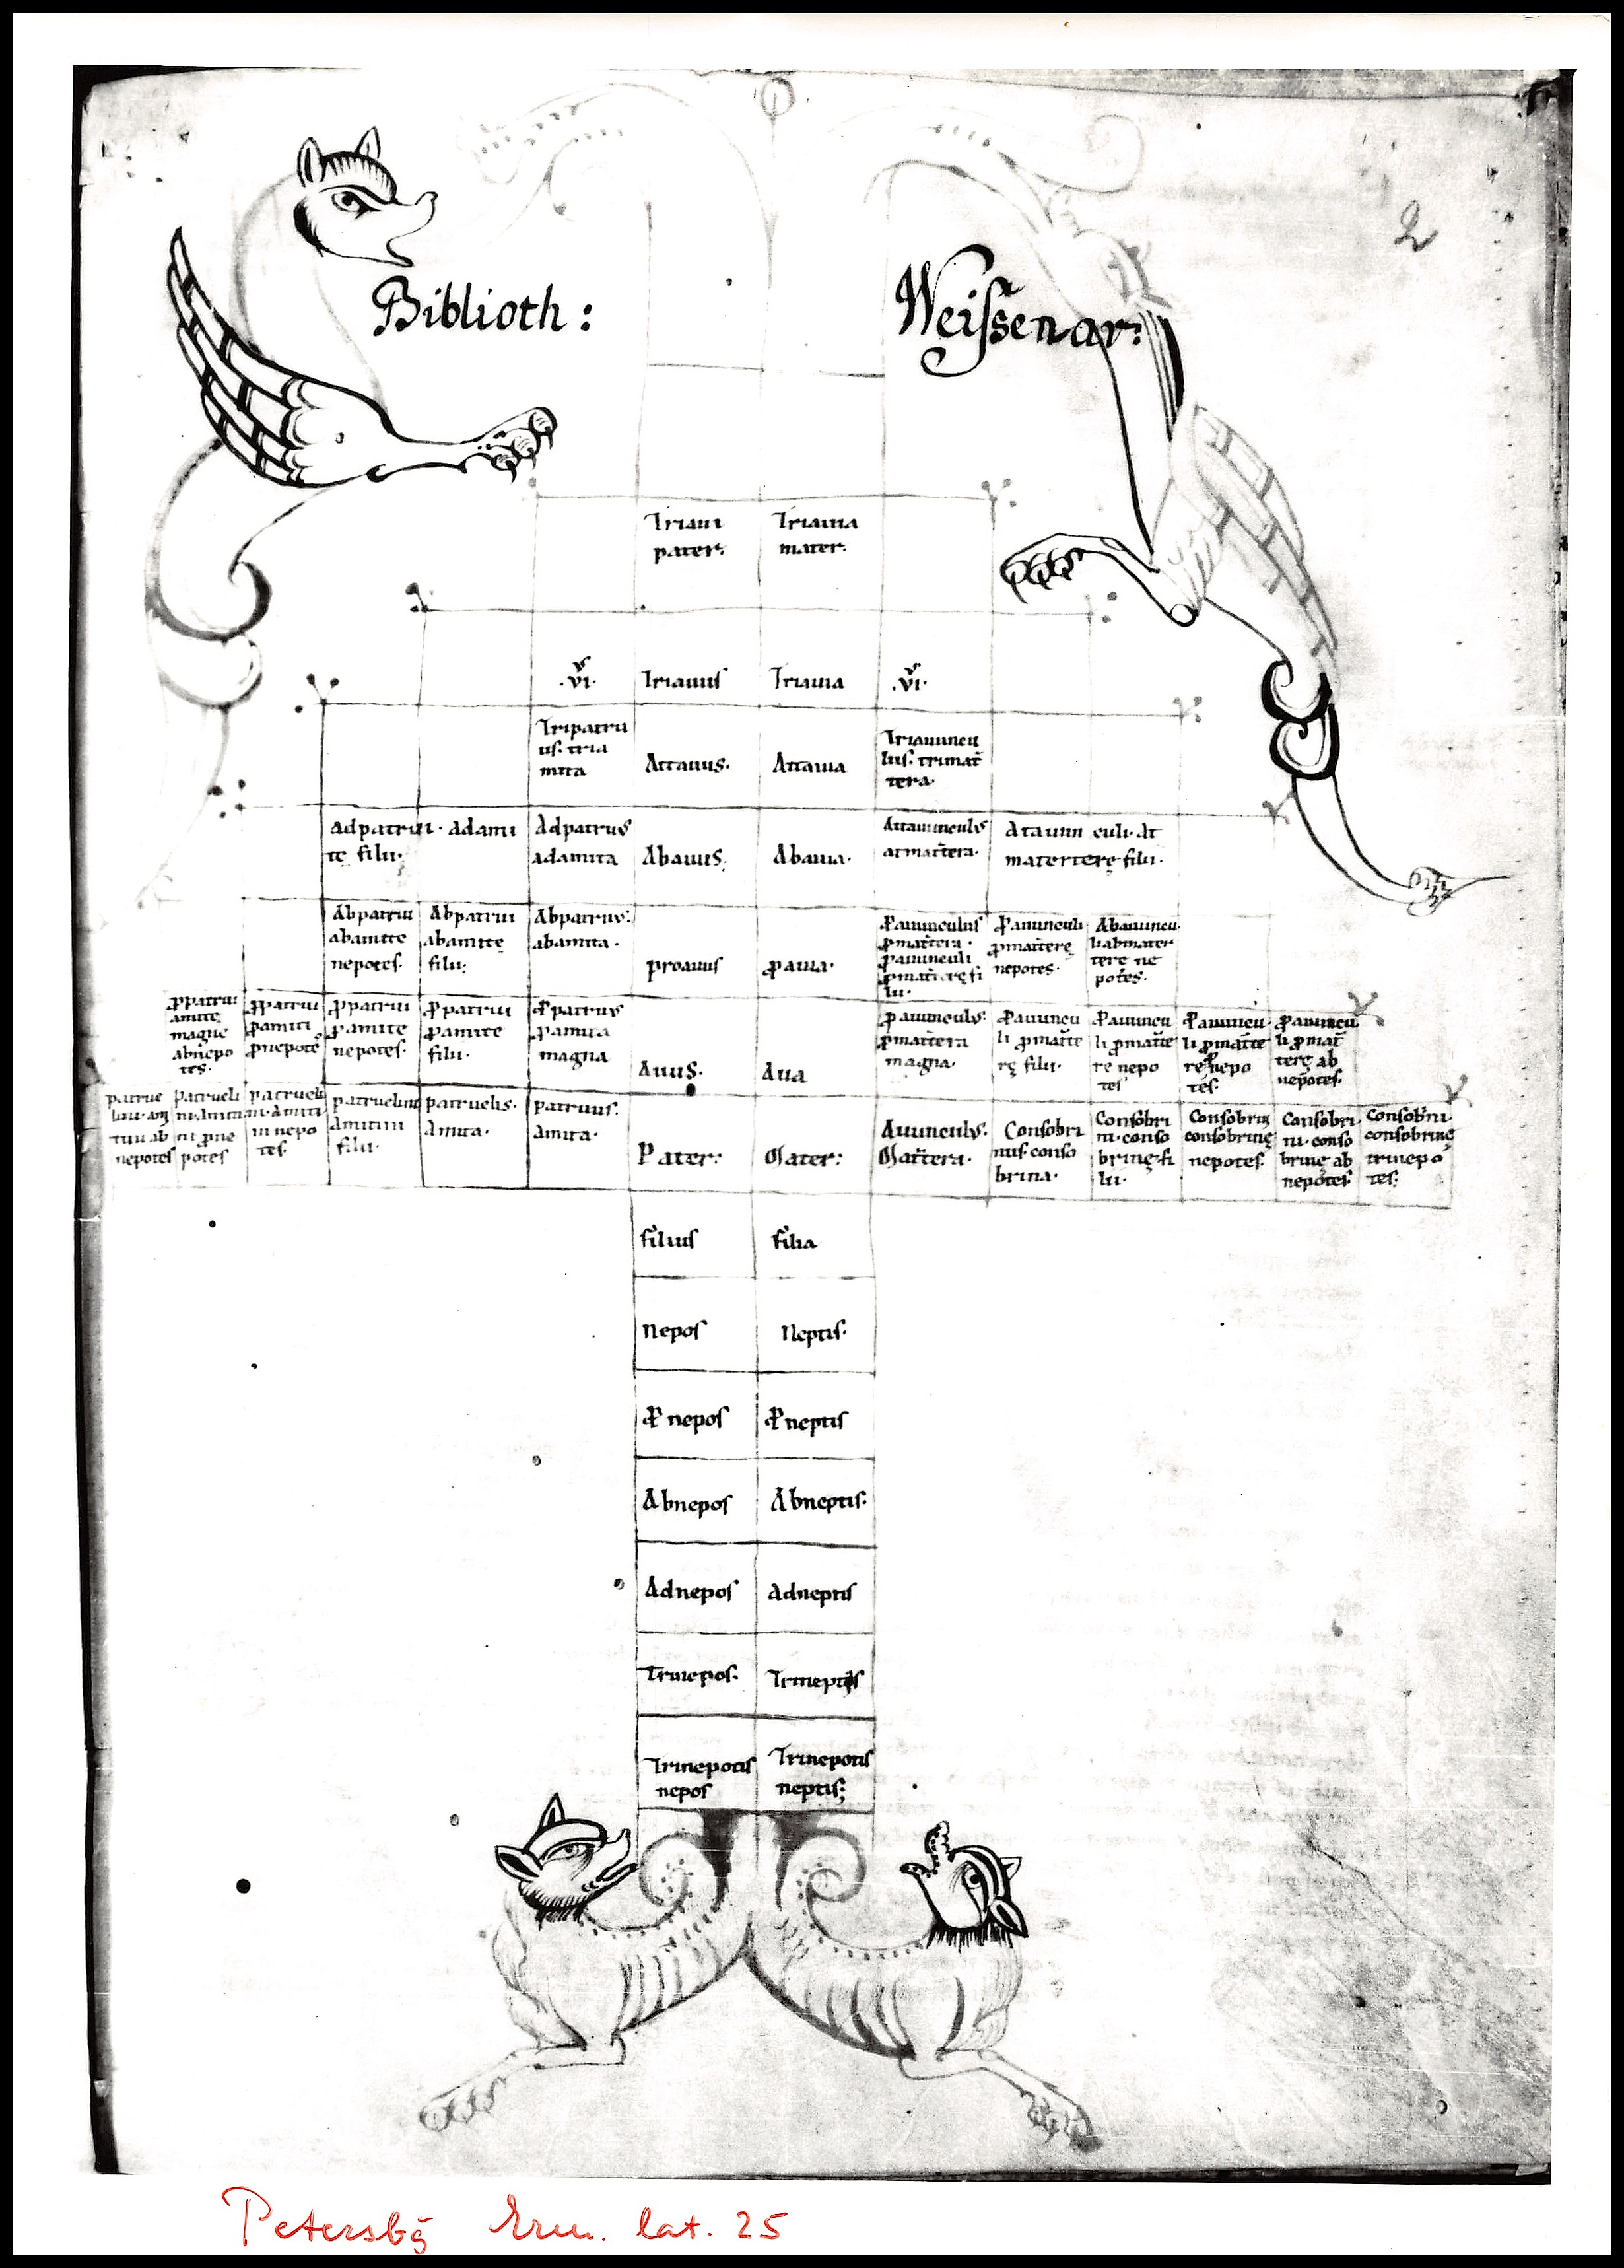 2
Biblioth:
Weissenar:
Triaui
pater:
Triauia
mater.
.vi.
Triauus
Triauia
.vi.
Tripatru
us. tria
mita
Attauus.
Attauia
Triauuncu
lus. trimat̄
tera.
adpatrui. adami
tę filii.
Adpatruus
adamita
Abauus.
Abauia.
Attaunculus
atmat̄tera.
Atauun culi. At
materterę filii.
Abpatrui
abamite
nepotes.
Abpatrui
abamitę
filii;
Abpatruus:
abamita.
proauus
ꝓauia.
ꝓauunculus
ꝓmat̄tera.
ꝓauunculi
ꝓmat̄terę fi
lii.
ꝓauunculi
ꝓmatterę
nepotes.
Abauuncu
li abmater
tere ne
potes.
ꝓpatrui
amitę
magne
abnepo
tes.
ꝓpatrui
ꝓamiti
ꝓnepotē
ꝓpatrui
ꝓamite
nepotes.
ꝓpatrui
ꝓamite
filii.
ꝓpatruus
ꝓamita
magna
Auus.
Aua
ꝓauunculus:
ꝓmattera
magna.
ꝓauuncu
li ꝓmatte
rę filii.
ꝓauuncu
li ꝓmatte
re nepo
tes
ꝓauuncu
li ꝓmatte
re ꝓnepo
tes.
ꝓauuncu
li ꝓmat̄
terę ab
nepotes.
patrue
nepotes
patrueli
potes
patrueli
ni nepo
tes.
patruelium
Amitini
filii.
patruelis.
Amita.
patruus.
Amita.
Pater:
Mater:
Auunculus.
Mat̄tera.
Consobri
nus. conso
brina.
Consobri
ni. conso
brinę. fi
lii.
Consobrini
consobrinę
nepotes.
Consobri
ni. conso
brinę ab
nepotes.
Consobrini
consobrinę
trinepo
tes:
filius
filia
Nepos
Neptis.
ꝓnepos
ꝓneptis
Abnepos
Abneptis.
Adnepos
adneptis
Trinepos.
Trineptis
Trinepotis
nepos
Trinepotis
neptis;
Petersbg Erm. lat. 25